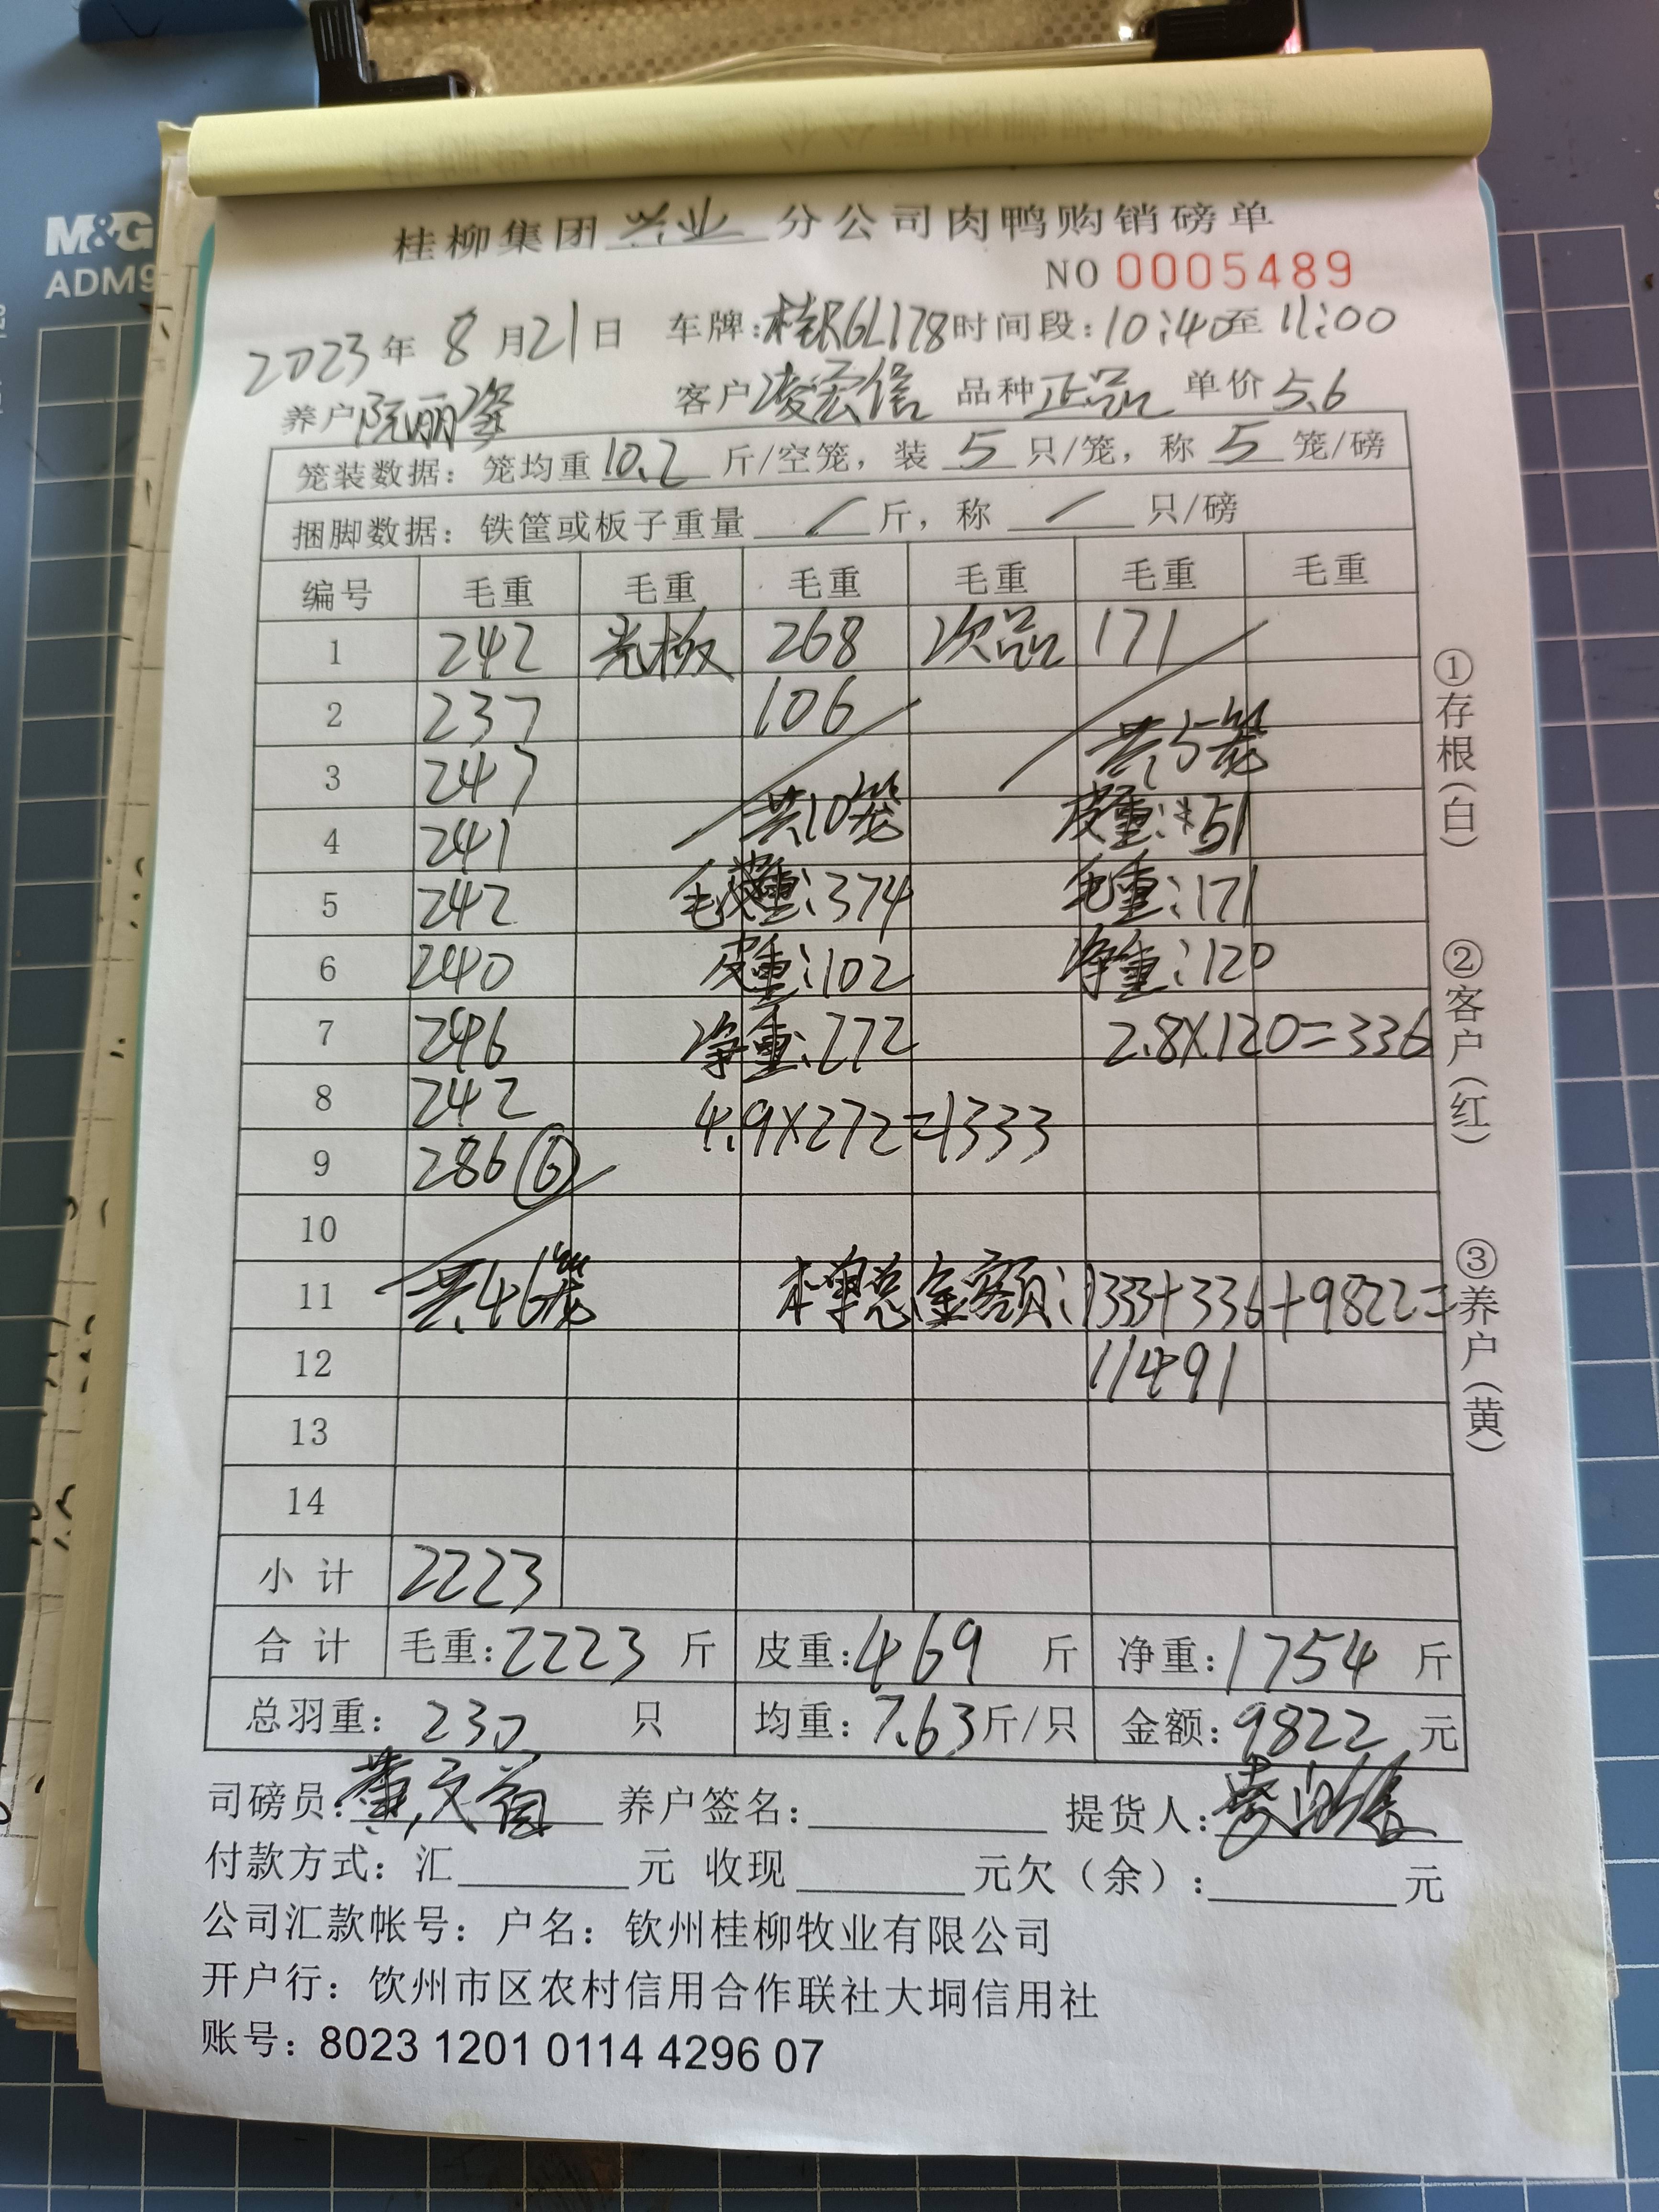 M&G
ADM9
桂柳集团兴业分公司肉鸭购销磅单
NO 0005489
2023年8月21日 车牌:桂R6L178 时间段:10:40至11:00
养户阮丽姿 客户凌宏信 品种正品 单价5.6
笼装数据：笼均重10.2斤/空笼，装5只/笼，称5笼/磅
捆脚数据：铁筐或板子重量/斤，称/只/磅
编号 毛重 毛重 毛重 毛重 毛重 毛重
1 242 亮板 268 次品 171
2 237 106
共5笼
3 247
4 241 共10笼 皮重:51
5 242 毛重:374 毛重:171
6 240 皮重:102 净重:120
7 246 净重:272 2.8×120=336
8 242 4.9×272=1333
9 286⑥
10
11 共46笼 本单总金额:1333+336+9822=
12 11491
13
14
小计 2223
合计 毛重:2223斤 皮重:469斤 净重:1754斤
总羽重：230只 均重:7.63斤/只 金额:9822元
司磅员: 养户签名: 提货人:
付款方式：汇 元 收现 元欠（余）: 元
公司汇款帐号：户名：钦州桂柳牧业有限公司
开户行：饮州市区农村信用合作联社大垌信用社
账号：8023 1201 0114 4296 07
①存根(白)
②客户(红)
③养户(黄)